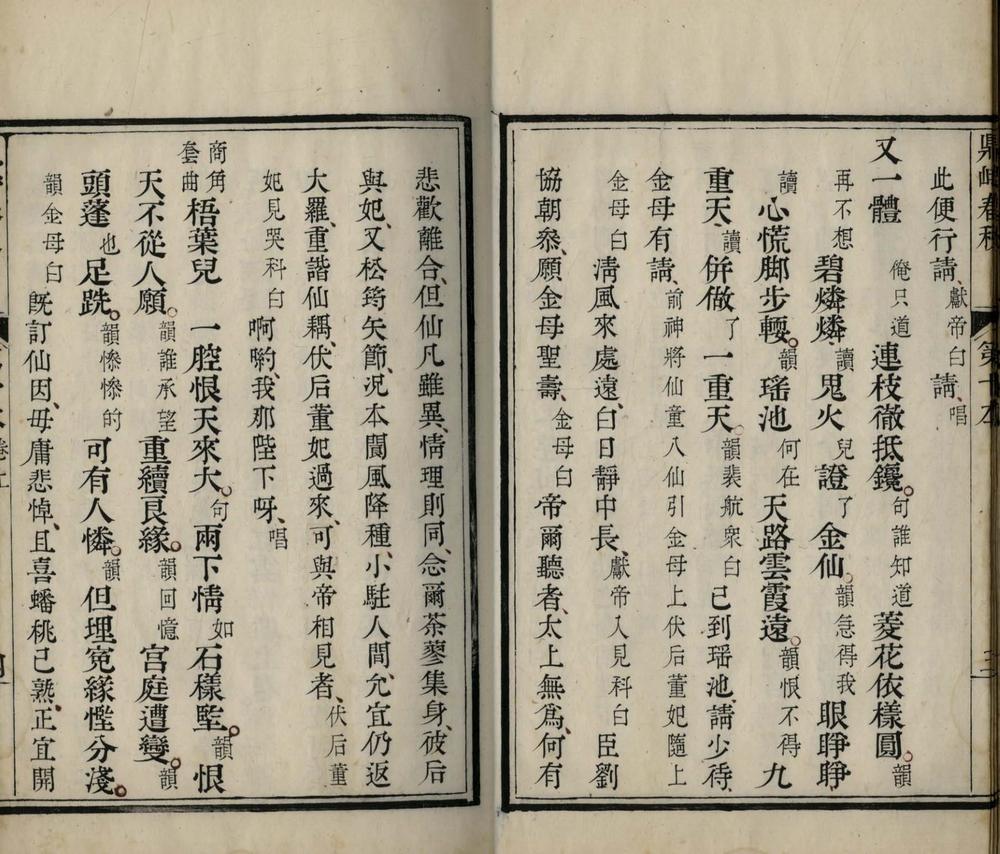 鼎峙春秋
第十本
此便行請、獻帝白請、唱
又一體 俺只道連枝徹抵鑱。句誰知道菱花依樣圓。韻
再不想碧燐燐、讀鬼火兒證了金仙。韻急得我眼睜睜
讀心慌脚步輭。韻瑶池何在天路雲霞遠。韻恨不得九
重天、讀併做了一重天。韻裴航衆白已到瑶池、請少待、
金母有請、前神將仙童八仙引金母上伏后董妃隨上
金母白清風來處遠、白日靜中長、獻帝入見科白臣劉
協朝叅、願金母聖壽、金母白帝爾聽者、太上無爲、何有
悲歡離合、但仙凡雖異、情理則同、念爾茶蓼集身、彼后
與妃、又松筠矢節、况本閬風降種、小駐人間、允宜仍返
大羅、重諧仙耦、伏后董妃過來、可與帝相見者、伏后董
妃見哭科白啊喲、我那陛下呀、唱
商角套曲 梧葉兒 一腔恨天來大。句兩下情如石樣堅。韻恨
天不從人願。韻誰承望重續良緣。韻回憶宫庭遭變。韻
頭蓬也足跣。韻慘慘的可有人憐。韻但埋寃緣慳分淺。
韻金母白既訂仙因、毋庸悲悼、且喜蟠桃已熟、正宜開